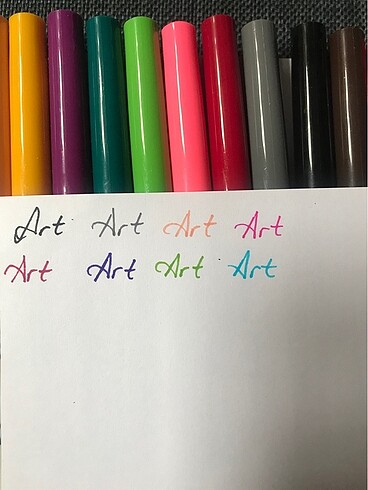 Art Art Art Art
Art Art Art Art